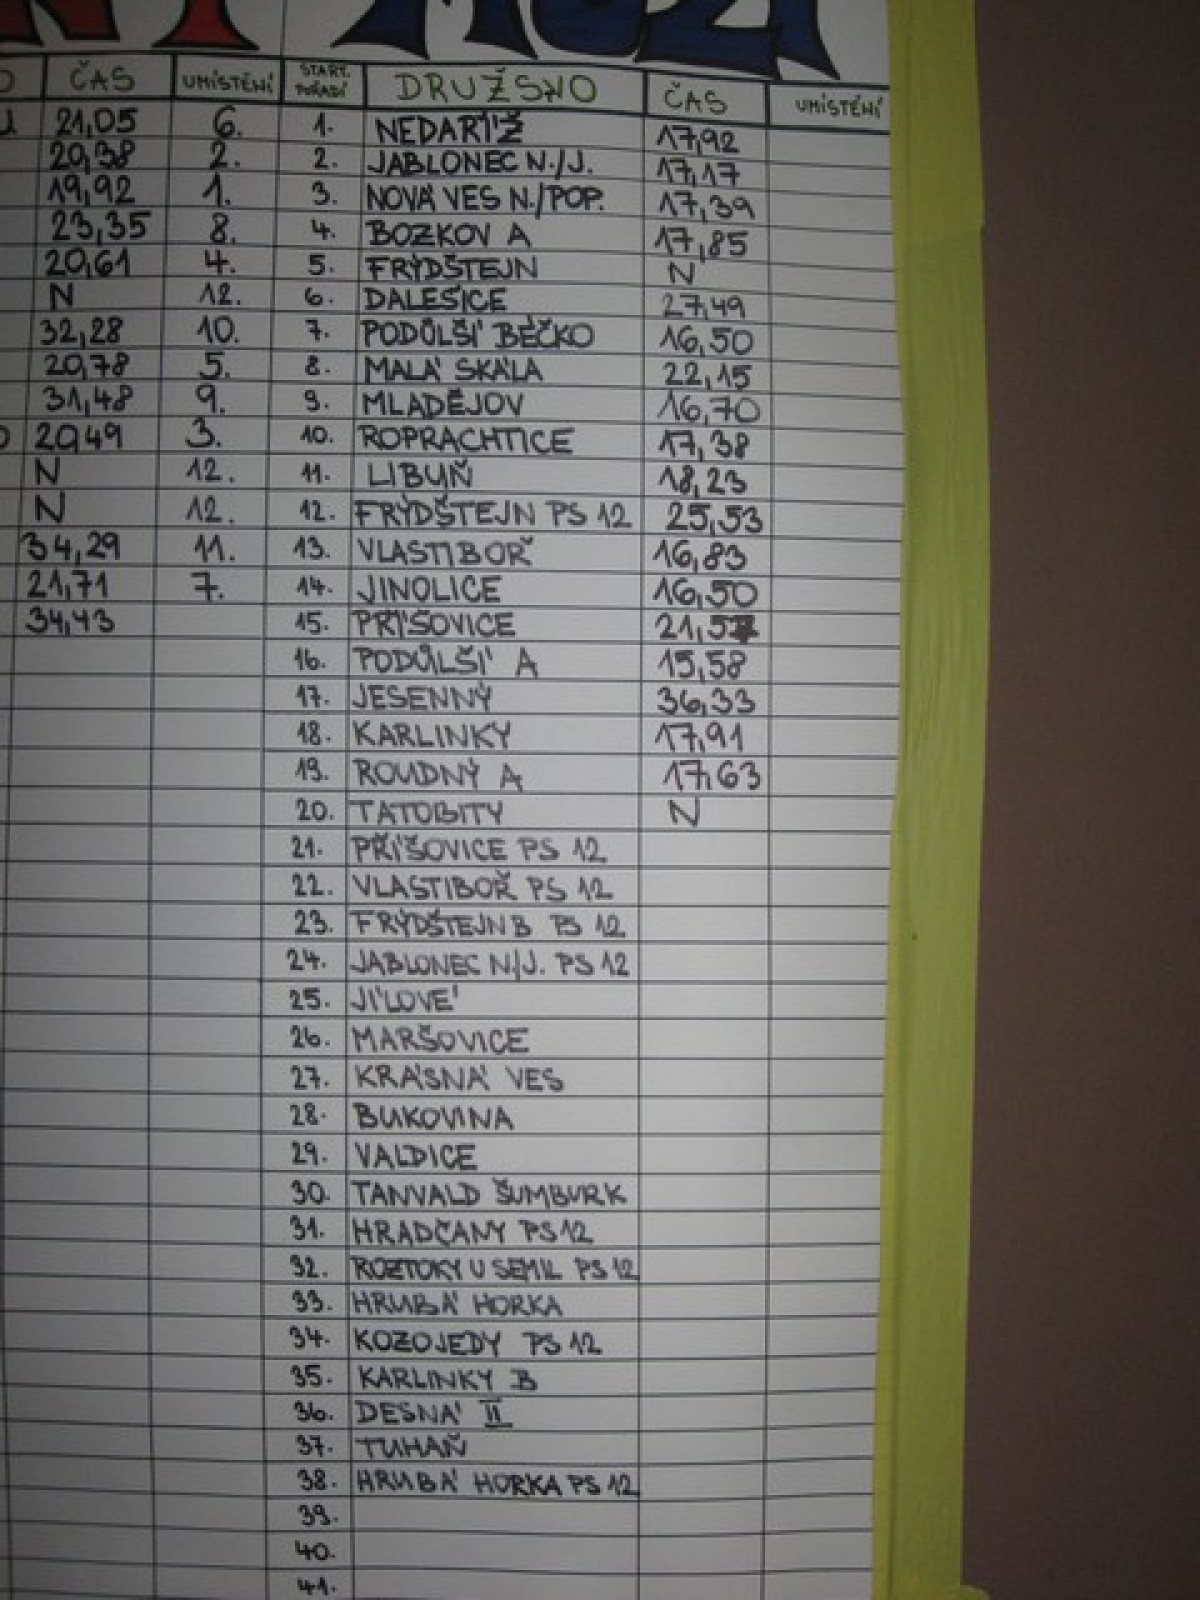 MUŽI
ČAS UMÍSTĚNÍ START. POŘADÍ DRUŽSNO ČAS UMÍSTĚNÍ
21,05 6. 1. NEDAŘÍŽ 17,92
20,38 2. 2. JABLONEC N./J. 17,17
19,92 1. 3. NOVÁ VES N./POP. 17,39
23,35 8. 4. BOZKOV A 17,85
20,61 4. 5. FRÝDŠTEJN N
N 12. 6. DALEŠICE 27,49
32,28 10. 7. PODŮLŠÍ BÉČKO 16,50
20,78 5. 8. MALÁ SKÁLA 22,15
31,48 9. 9. MLADĚJOV 16,70
20,49 3. 10. ROPRACHTICE 17,38
N 12. 11. LIBUŇ 18,23
N 12. 12. FRÝDŠTEJN PS 12 25,53
34,29 11. 13. VLASTIBOŘ 16,83
21,71 7. 14. JINOLICE 16,50
34,43 15. PŘÍŠOVICE 21,57
16. PODŮLŠÍ A 15,58
17. JESENNÝ 36,33
18. KARLINKY 17,91
19. ROUDNÝ A 17,63
20. TATOBITY N
21. PŘÍŠOVICE PS 12
22. VLASTIBOŘ PS 12
23. FRÝDŠTEJN B PS 12
24. JABLONEC N/J. PS 12
25. JÍLOVÉ
26. MARŠOVICE
27. KRÁSNÁ VES
28. BUKOVINA
29. VALDICE
30. TANVALD ŠUMBURK
31. HRADČANY PS 12
32. ROZTOKY U SEMIL PS 12
33. HRUBÁ HORKA
34. KOZOJEDY PS 12
35. KARLINKY B
36. DESNÁ II
37. TUHAŇ
38. HRUBÁ HORKA PS 12
39.
40.
41.